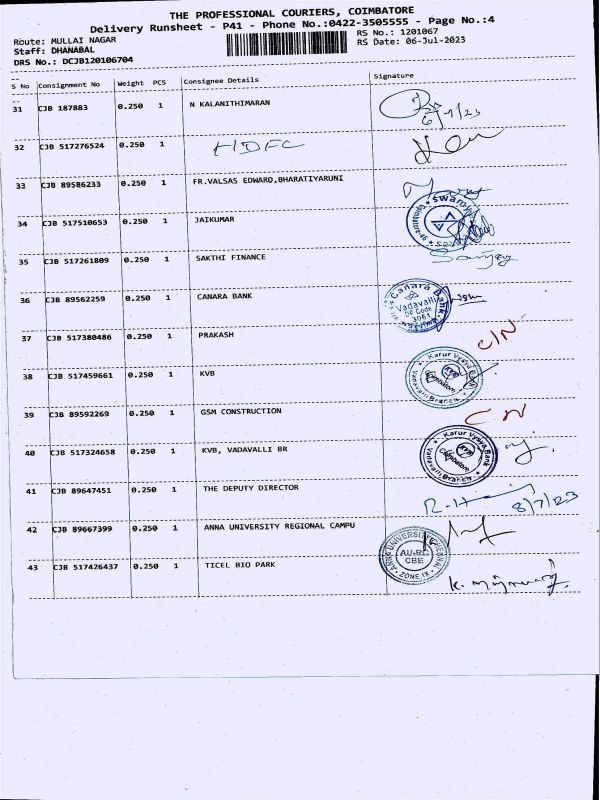 THE PROFESSIONAL COURIERS, COIMBATORE
Delivery Runsheet - P41 - Phone No.:0422-3505555 - Page No.:4
Route: MULLAI NAGAR
RS No.: 1201067
Staff: DHANABAL
RS Date: 06-Jul-2023
DRS No.: DCJB120106704
S No Consignment No Weight PCS Consignee Details Signature
31 CJB 187883 0.250 1 N KALANITHIMARAN 6/7/23
32 CJB 517276524 0.250 1 HDFC
33 CJB 89586233 0.250 1 FR.VALSAS EDWARD,BHARATIYARUNI
34 CJB 517510653 0.250 1 JAIKUMAR
35 CJB 517261809 0.250 1 SAKTHI FINANCE Sanjay
36 CJB 89562259 0.250 1 CANARA BANK Canara Bank Vadavalli DP Code 3061
37 CJB 517380486 0.250 1 PRAKASH C/N
38 CJB 517459661 0.250 1 KVB Karur Vysya Bank KVB Coimbatore Vadavalli Branch
39 CJB 89592269 0.250 1 GSM CONSTRUCTION C N
40 CJB 517324658 0.250 1 KVB, VADAVALLI BR Karur Vysya Bank KVB Coimbatore Vadavalli Branch
41 CJB 89647451 0.250 1 THE DEPUTY DIRECTOR 8/7/23
42 CJB 89667399 0.250 1 ANNA UNIVERSITY REGIONAL CAMPU ANNA UNIVERSITY CHENNAI AU-RC CBE ZONE IX
43 CJB 517426437 0.250 1 TICEL BIO PARK